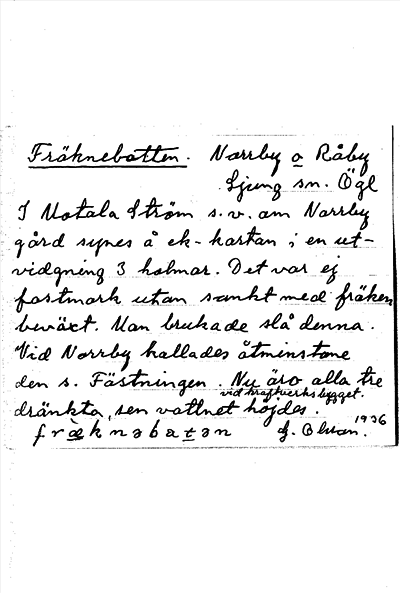 Fräknebotten. Norrby o Råby
Ljung sn. Ögl
I Motala Ström s.v. om Norrby
gård synes å ek-kartan i en ut-
vidgning 3 holmar. Det var ej
fastmark utan sankt med fräken
beväxt. Man brukade slå denna.
Vid Norrby kallades åtminstone
den s. Fästningen. Nu äro alla tre
vid kraftverksbygget.
dränkta, sen vattnet höjdes.
1936
fràknəbatən G. Olson.